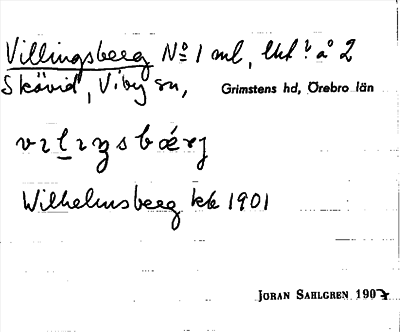 Villingsberg No 1 ml, lht ? å 2
Skävid, Viby sn, Grimstens hd, Örebro län
Wilhelmsberg kk 1901
JORAN SAHLGREN 1907